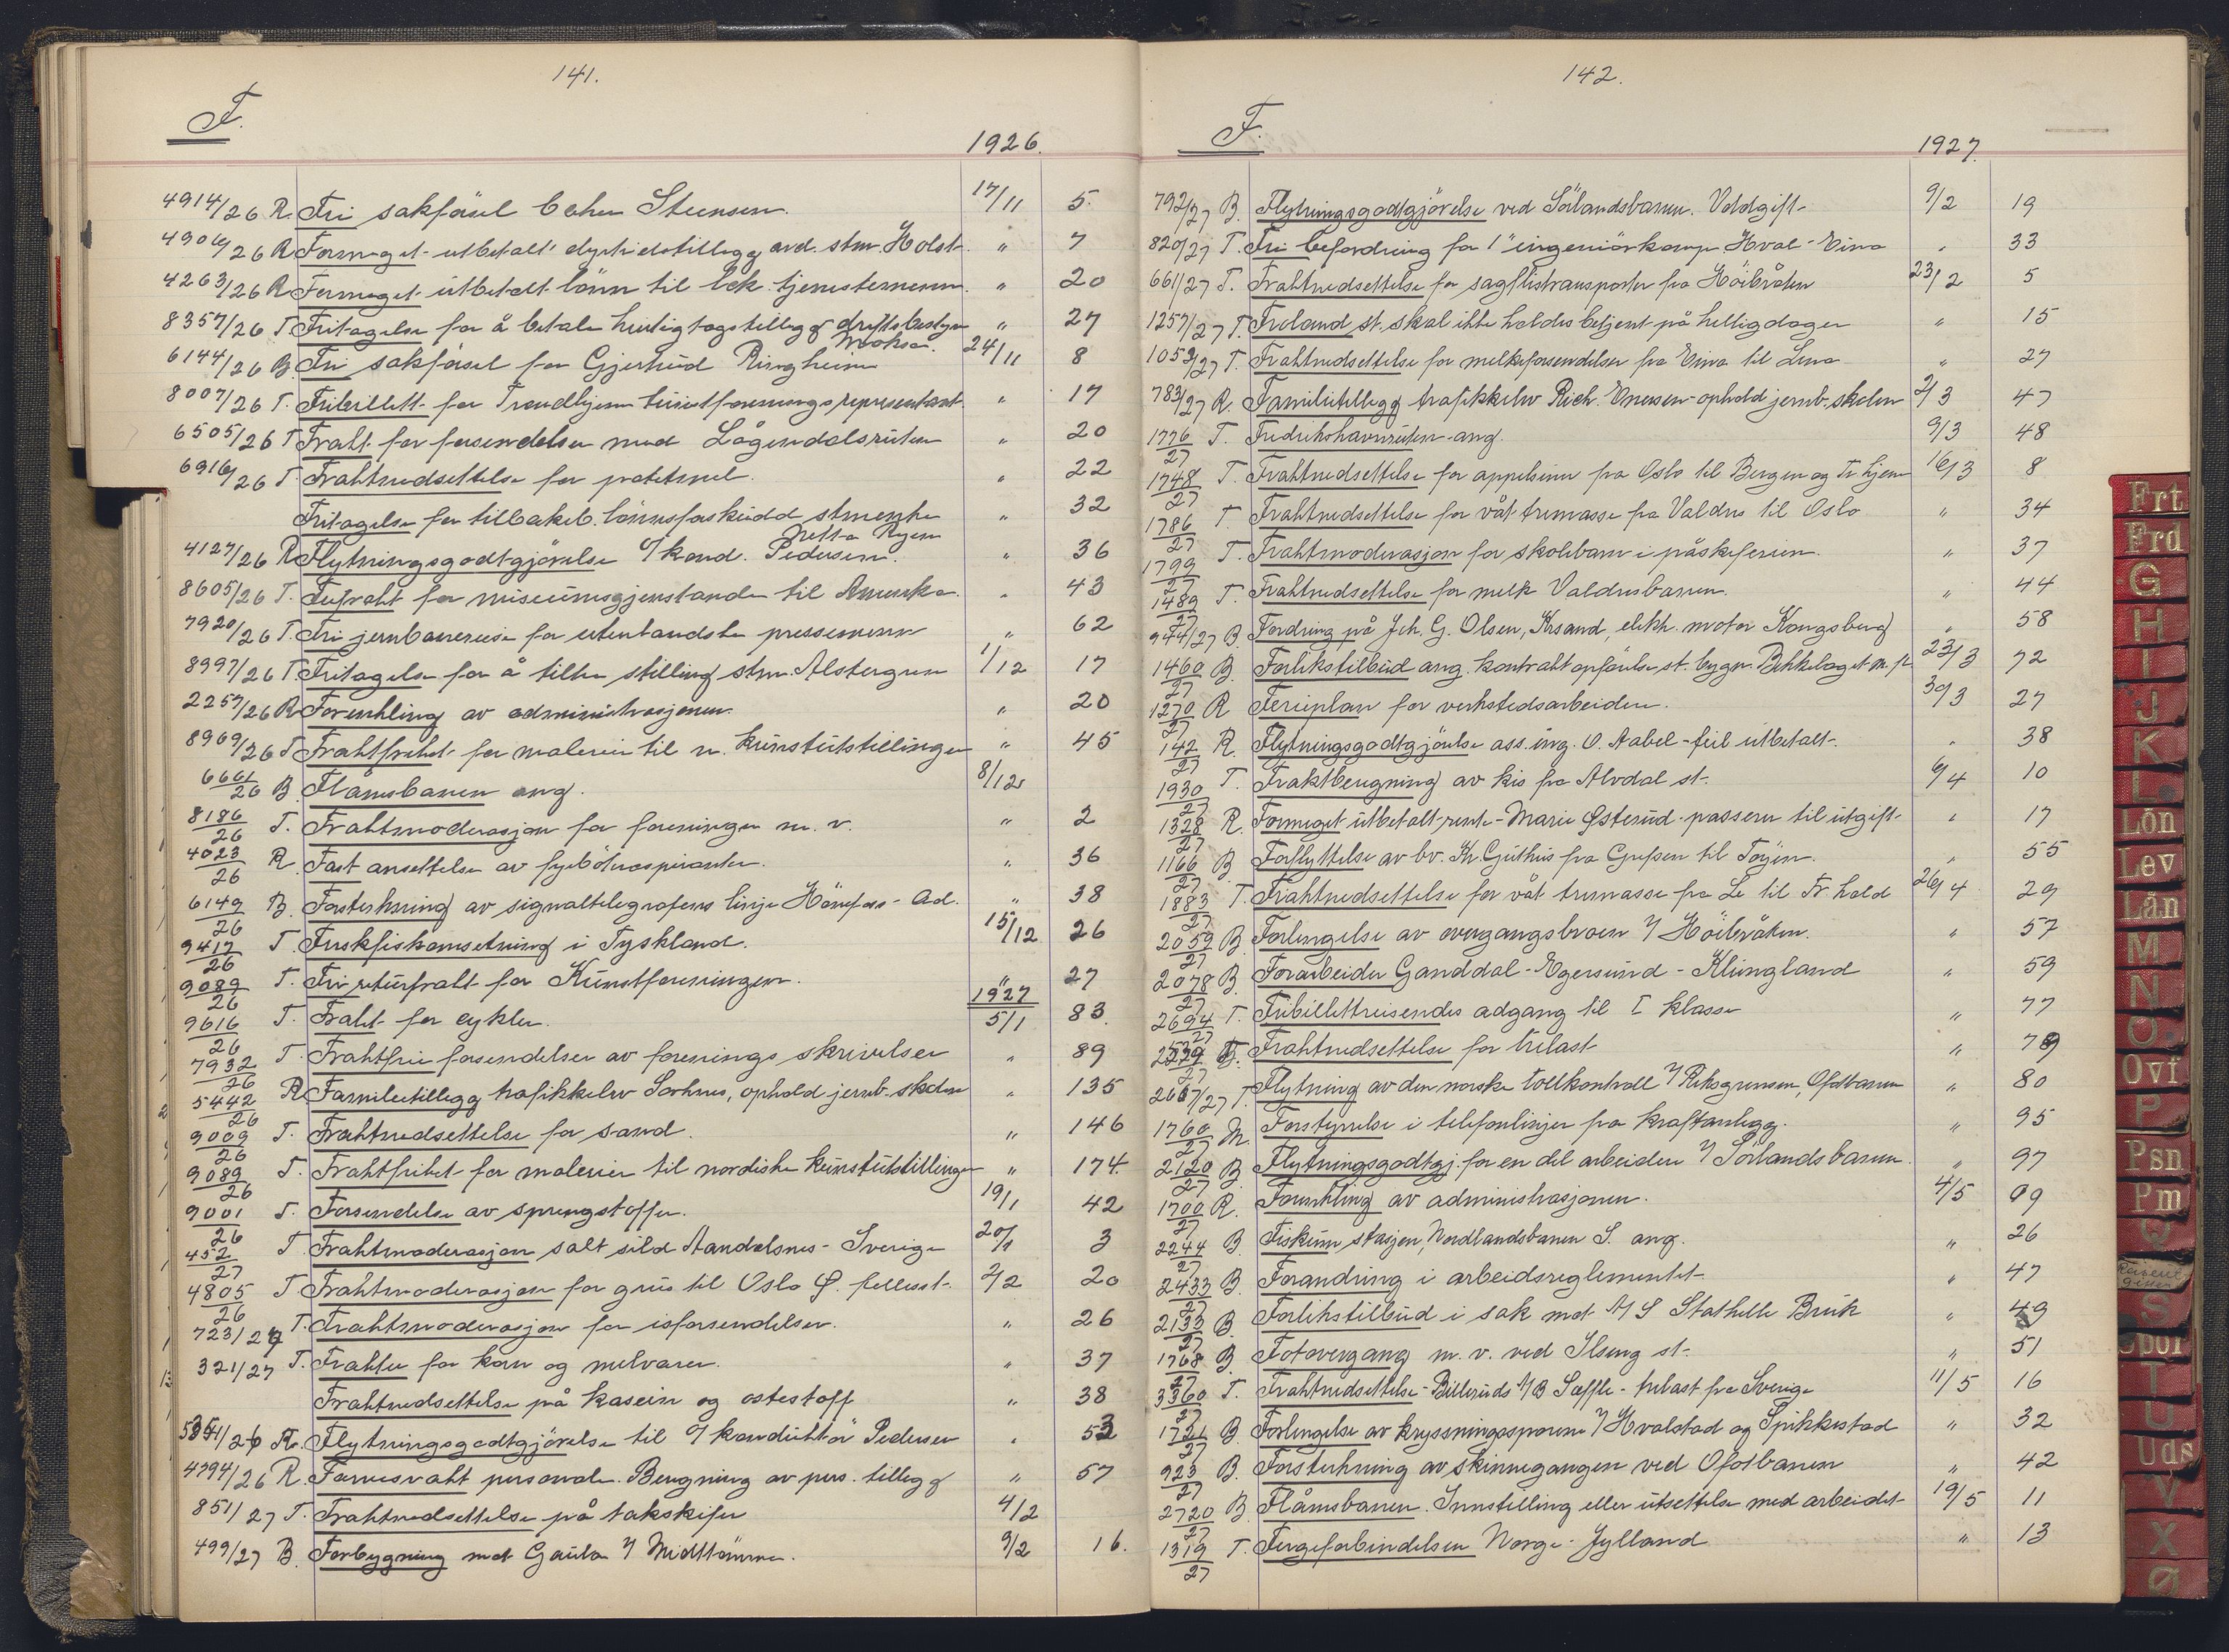 141.
F.
1926.
4914/26 R. Fri sakførsel Steensen. 17/11 5.
4906/26 R Formeget utbetalt dyrtidstillegg avd. stm. Holst. " 7
4263/26 R Formeget utbetalt lönn til lok. tjenestemenn " 20
8357/26 T Fritagelse for å betale hurtigtogstillegg driftsbestyrer " 27
6144/26 B. Fri sakförsel for Gjertrud Ringheim 24/11 8
8007/26 T. Fribillett for Trondhjem turistforenings representant. " 17
6505/26 T Frakt for forsendelser med Lågendalsruten " 20
6916/26 T. Fraktnedsettelse for potetmel. " 22
Fritagelse for tilbakeb. lönnsforskudd stmenke " 32
4127/26 R Flytningsgodtgjörelse o/kond. Pedersen. " 36
8605/26 T. Fri frakt for museumsgjenstander til Amerika. " 43
7920/26 T. Fri jernbanereise for utenlandske pressemenn " 62
8997/26 T. Fritagelse for å tiltre stilling stm. Alstergren 1/12 17
2257/26 R Forenkling av administrasjonen. " 20
8969/26 T Fraktfrihet for malerier til n. kunstutstillinger " 45
6661/26 B. Flamsbanen ang. 8/12
8186/26 T. Fraktmoderasjon for foreninger m. v. " 2
4023/26 R. Fast ansettelse av fyrböteraspiranter. " 36
6149/26 B. Forsterkning av signaltelegrafens linje Hönefoss - Ad. " 38
9412/26 T. Ferskfiskomsetning i Tyskland. 15/12 26
9089/26 T. Fri returfrakt for Kunstforeningen. " 27
1927
9616/26 T. Frakt for cykler. 5/1 83.
7932/26 T. Fraktfrie forsendelser av forenings skrivelser " 89
5442/26 R. Familietillegg trafikkelev Sörhus, ophold jernb. skolen " 135
9009/26 T. Fraktnedsettelse for sand. " 146
9089/26 T. Fraktfrihet for malerier til nordiske kunstutstillinger " 174.
9001/26 T. Forsendelse av sprengstoffer. 19/1 42
452/27 T Fraktmoderasjon salt sild Åndalsnes - Sverige 20/1 3
4805/26 T Fraktmoderasjon for grus til Oslo Ø. fellesst. 2/2 20
723/27 T. Fraktmoderasjon for isforsendelser. " 26
321/27 T. Frakter for korn og melvarer. " 37
Fraktnedsettelse på kasein og ostestoff " 38
5354/26 R. Flytningsgodtgjörelse til o/konduktör Pedersen " 53
4794/26 R. Farvesvakt personale. Beregning av pers. tillegg " 57
851/27 T. Fraktnedsettelse på takskifer 4/2
499/27 B. Forbygning mot Gaula v/ Midttömme. 9/2 16.
142.
F.
1927.
792/27 B. Flytningsgodtgjörelse ved Sörlandsbanen. Voldgift 9/2 19
820/27 T. Fri befordring for 1" ingeniörkomp. Hval - Eina " 33
661/27 T. Fraktnedsettelse for sagflistransporter fra Höibråten 23/2 5
1257/27 T. Freland st. skal ikke holdes betjent på helligdager " 15
1052/27 T. Fraktnedsettelse for melkeforsendelser fra Eina til Lena " 27
783/27 R. Familietillegg trafikkelev Rich. Enersen - ophold jernb. skolen 2/3 47
1776/27 T. Fredrikshavnruten ang. 9/3 48
1748/27 T. Fraktnedsettelse for appelsiner fra Oslo til Bergen og Tr.hjem 16/3 8
1786/27 T Fraktnedsettelse for våt tremasse fra Valdres til Oslo " 34
1799/27 T. Fraktmoderasjon for skolebarn i påskeferien. " 37
1489/27 T. Fraktnedsettelse for melk Valdresbanen. " 44
944/27 B. Fordring på Joh. G. Olsen, Krsand, elektr. motor Kongsberg " 58
1460/27 B. Forlikstilbud ang. kontrakt opförelse st. bygn. Bekkelaget m. fl. 23/3 72
1270/27 R Ferieplan for verkstedsarbeidere. 30/3 27
142/27 R. Flytningsgodtgjörelse ass. ing. O. Aabel - feil utbetalt. " 38
1930/27 T. Fraktberegning av kis fra Alvdal st. 6/4 10
1328/27 R. Formeget utbetalt rente - Marie Østerud - passeres til utgift. " 17
1166/27 B Forflyttelse av bv. Kr. Guthus fra Grefsen til Töyen. " 55
1883/27 T. Fraktnedsettelse for våt tremasse fra Le til Fr. hald 26/4 29
2059/27 B. Forlengelse av overgangsbroen v/ Höibråten. " 57
2078/27 B. Forarbeider Ganddal - Egersund - Klungland " 59
2694/27 T. Fribillettreisendes adgang til I klasse " 77
T. Fraktnedsettelse for trelast " 79
2667/27 T. Flytning av den norske tollkontroll v/ Riksgrensen, Ofotbanen " 80
1760/27 M. Forstyrrelse i telefonlinjer fra kraftanlegg. " 95
2120/27 B. Flytningsgodtgj. for en del arbeidere v/ Sörlandsbanen. " 97
1700/27 R. Forenkling av administrasjonen. 4/5 99
2244/27 B. Fiskum stasjon, Nordlandsbanen S. ang. " 26
2433/27 B. Forandring i arbeidsreglementet " 47
2133/27 B. Forlikstilbud i sak mot A/S Stathelle Bruk " 49
1768/27 B. Fotovergang m. v. ved Ilseng st. " 51
3360/27 T. Fraktnedsettelse - Billeruds A/B Säffle - trelast fra Sverige 11/5 16
1721/27 B. Forlengelse av kryssningssporene v/ Hvalstad og Spikkestad " 32
923/27 B. Forsterkning av skinnegangen ved Ofotbanen " 42
2720/27 B. Flåmsbanen. Innstilling eller utsettelse med arbeidet 19/5 11
1319/27 T. Fergeforbindelsen Norge - Jylland " 13
Frt
Frd
G
H
I
J
K
L
Lön
Lev
Lån
M
N
O
Ovf
P
Psn
Pm
Q
S
Spor
T
U
Uds
V
X
Ø